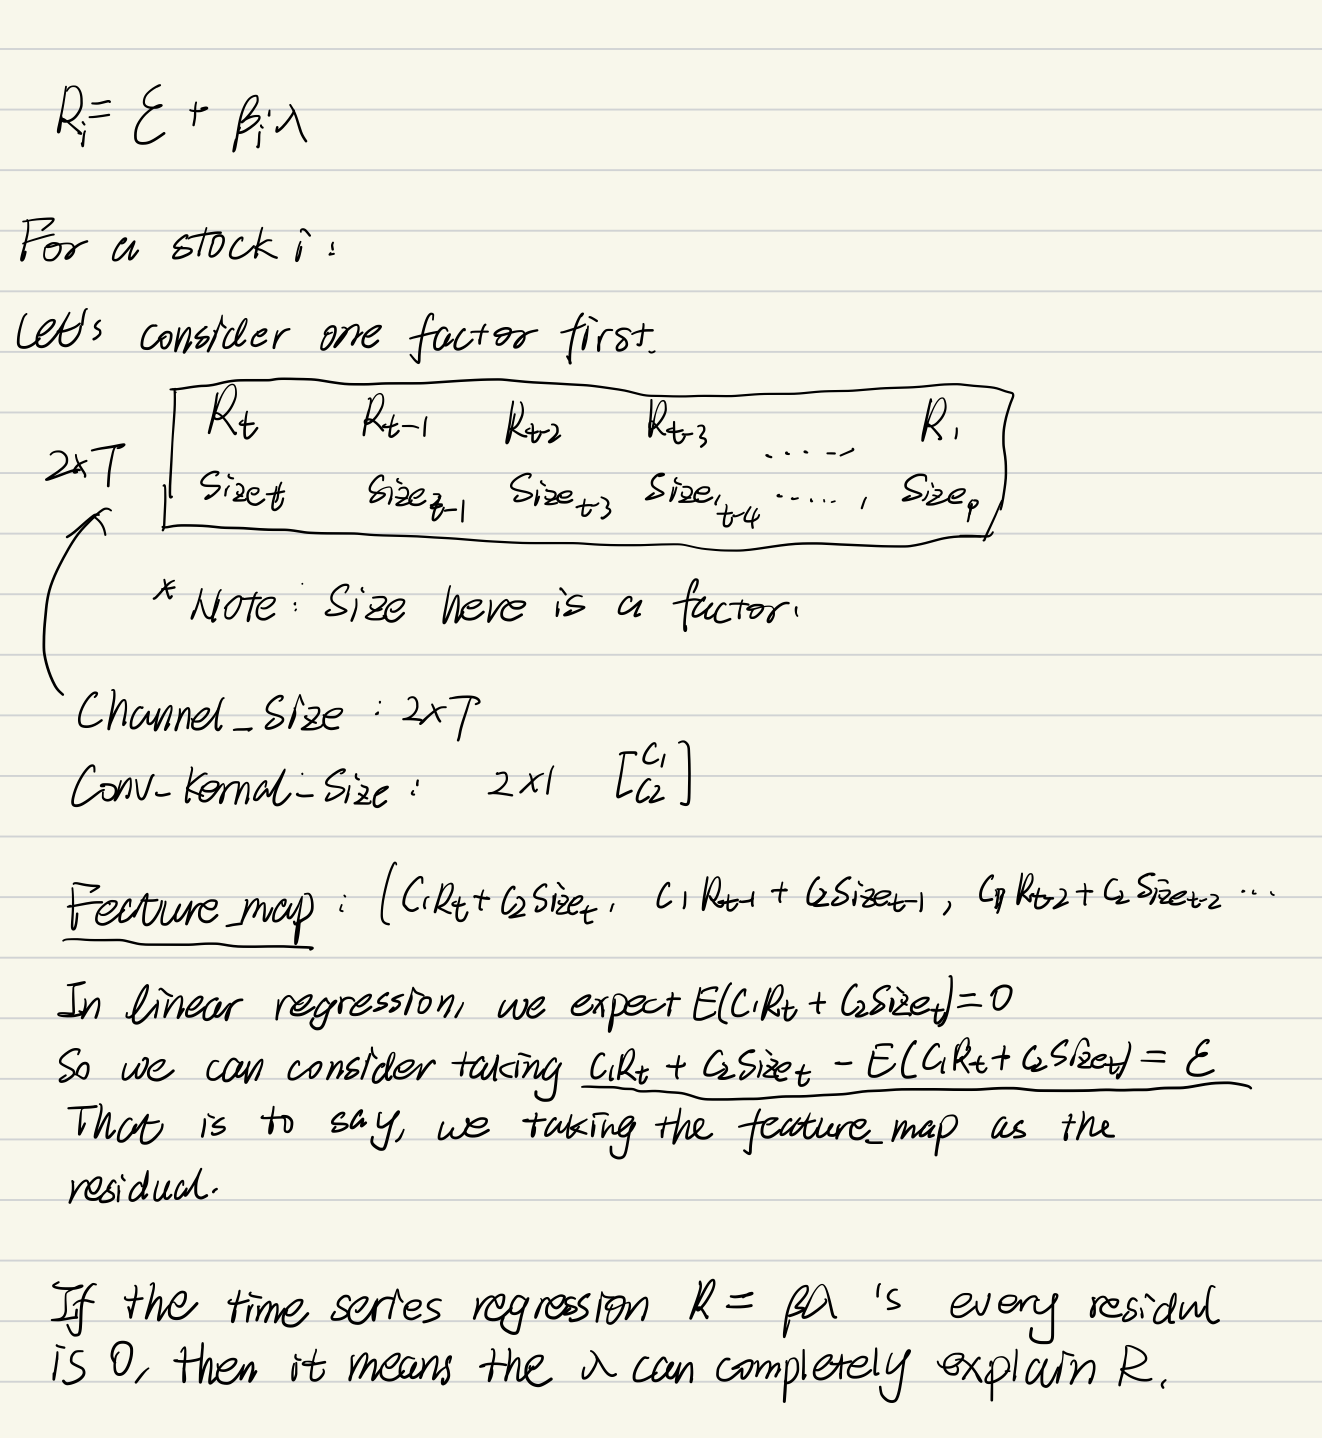 Rᵢ = ε + βᵢλ
For a stock i:
Let's consider one factor first.
Rₜ Rₜ₋₁ Rₜ₋₂ Rₜ₋₃ ..... R₁
2×T
Sizeₜ Sizeₜ₋₁ Sizeₜ₋₃ Sizeₜ₋₄ ....., Size₁
* Note: Size here is a factor.
Channel_Size : 2×T
Conv-Kornal-Size : 2×1 [C₁ C₂]
Feature_map : (C₁Rₜ + C₂Sizeₜ, C₁Rₜ₋₁ + C₂Sizeₜ₋₁, C₁Rₜ₋₂ + C₂Sizeₜ₋₂ ...
In linear regression, we expect E(C₁Rₜ + C₂Sizeₜ) = 0
So we can consider taking C₁Rₜ + C₂Sizeₜ - E(C₁Rₜ + C₂Sizeₜ) = ε
That is to say, we taking the feature_map as the
residual.
If the time series regression R = βλ 's every residul
is 0, then it means the λ can completely explain R.